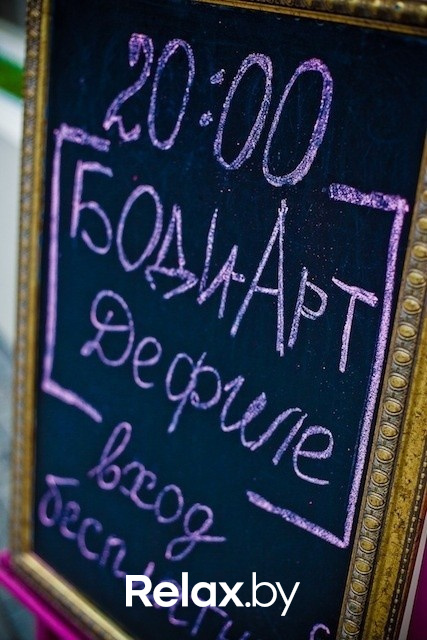 20:00
БОДИ-АРТ
Дефиле
вход
Relax.by